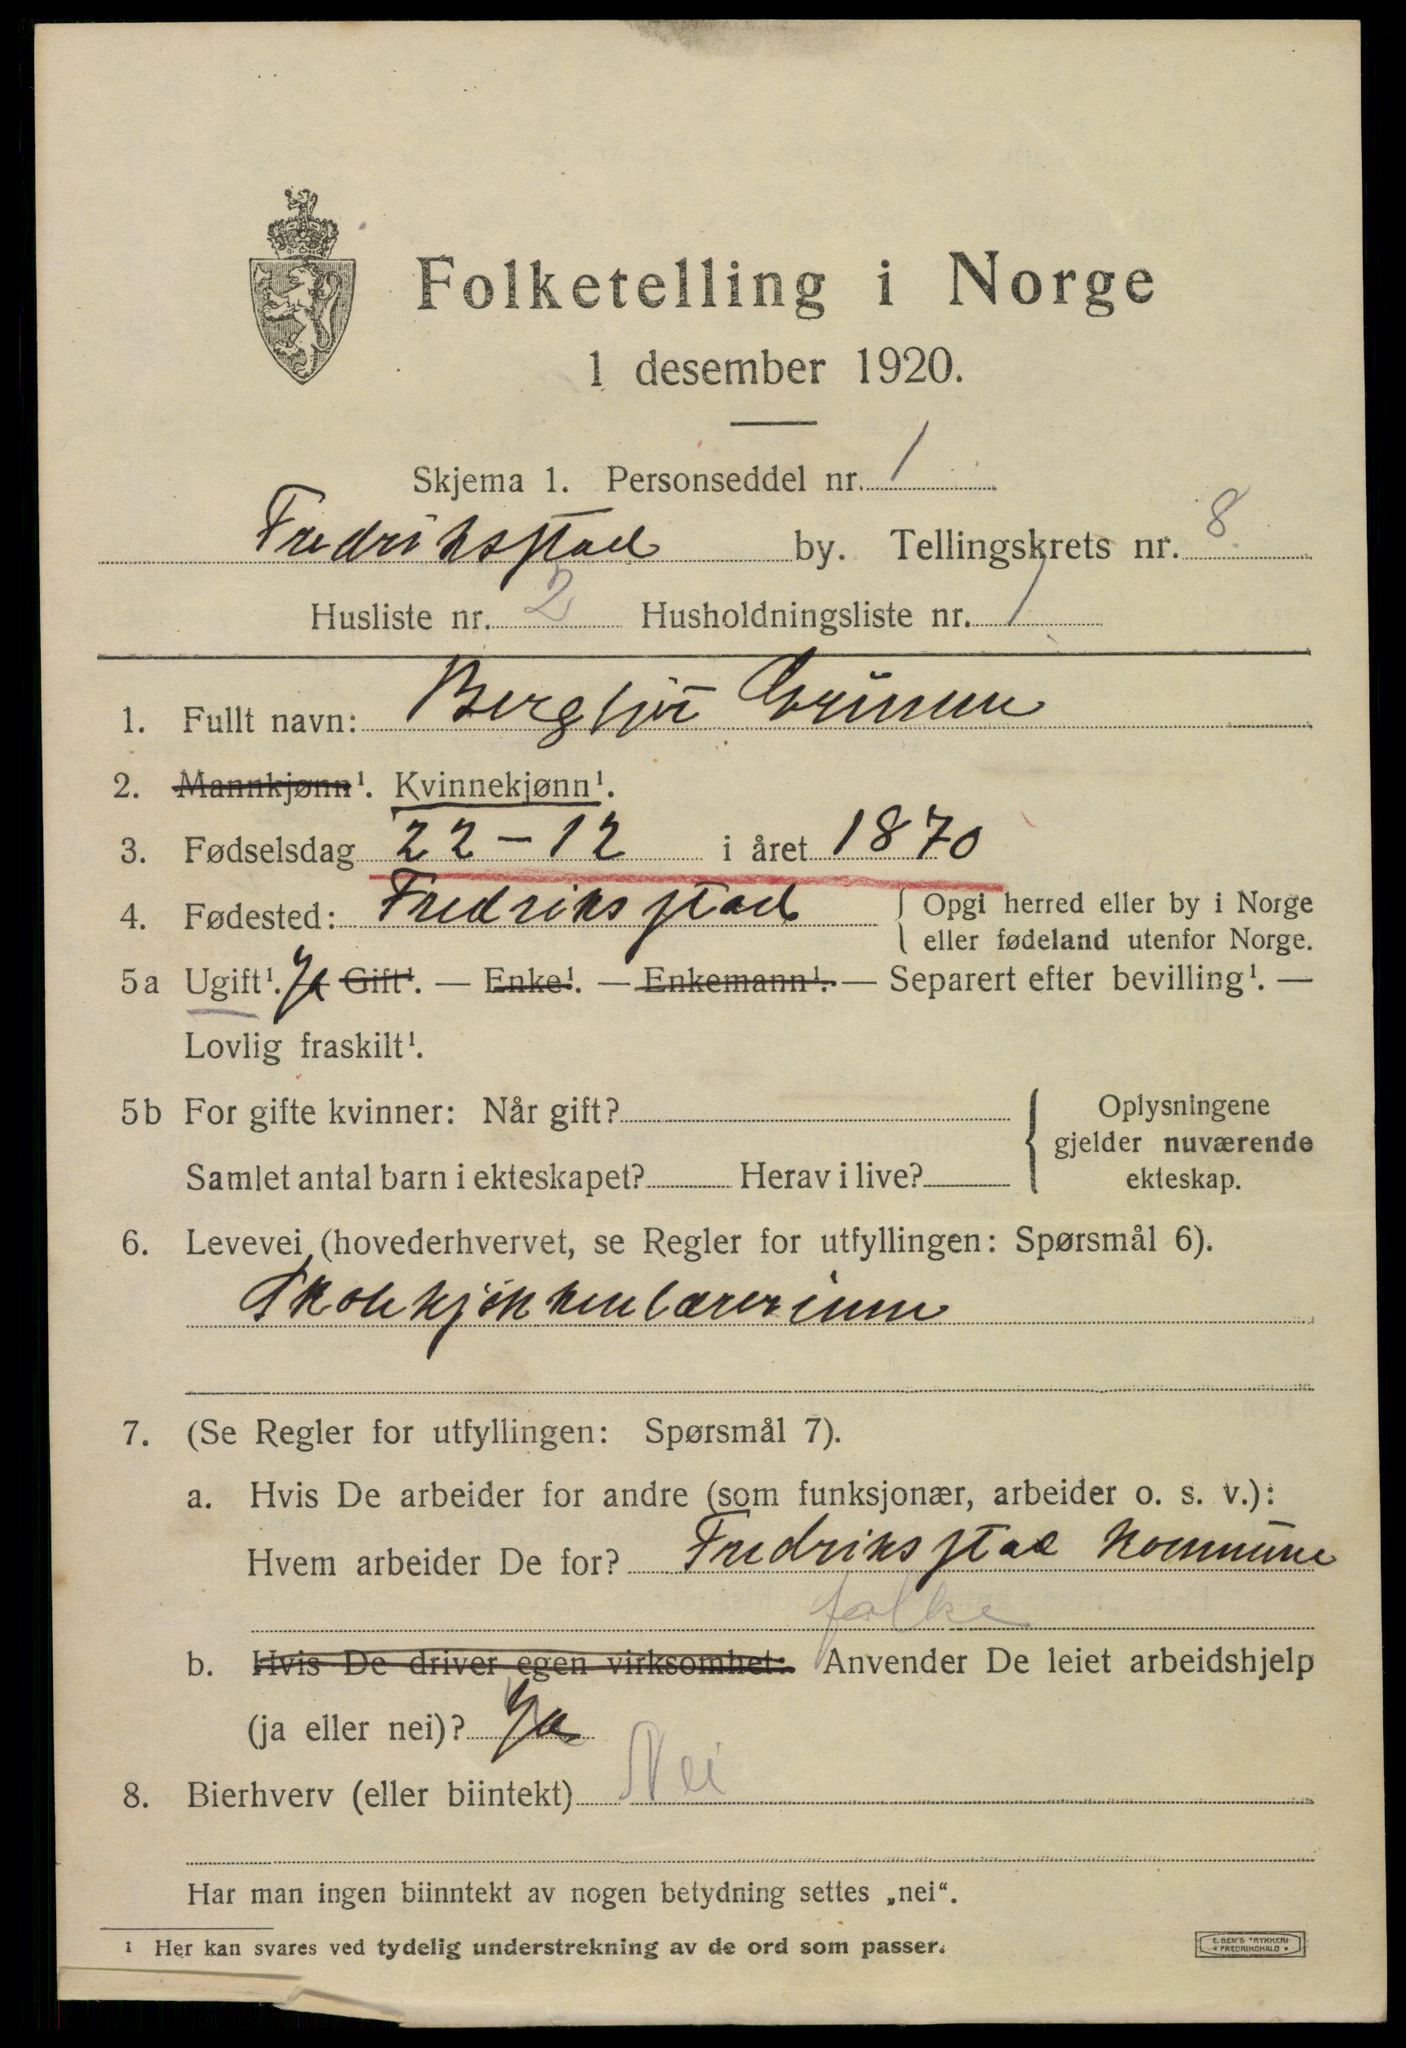 Folketelling i Norge
1 desember 1920.
Skjema 1. Personseddel nr. 1
Fredriksstad by. Tellingskrets nr. 8
Husliste nr. 2 Husholdningsliste nr. 1
1. Fullt navn: Bergljot Grünun
2. Mannkjønn¹. Kvinnekjønn¹.
3. Fødselsdag 22-12 i året 1870
4. Fødested: Fredriksstad { Opgi herred eller by i Norge
eller fødeland utenfor Norge.
5a Ugift¹. Ja Gift¹. — Enke¹. — Enkemann¹. — Separert efter bevilling¹. —
Lovlig fraskilt¹.
5b For gifte kvinner: Når gift? { Oplysningene
gjelder nuværende
Samlet antal barn i ekteskapet? Herav i live? ekteskap.
6. Levevei (hovederhvervet, se Regler for utfyllingen: Spørsmål 6).
Skolekjøkkenlærerinne
7. (Se Regler for utfyllingen: Spørsmål 7).
a. Hvis De arbeider for andre (som funksjonær, arbeider o. s. v.):
Hvem arbeider De for? Fredriksstad Kommune
folke
b. Hvis De driver egen virksomhet: Anvender De leiet arbeidshjelp
(ja eller nei)? Ja
8. Bierhverv (eller biintekt) Nei
Har man ingen biinntekt av nogen betydning settes „nei“.
¹ Her kan svares ved tydelig understrekning av de ord som passer.
E. SEM'S TRYKKERI
FREDRIKSHALD